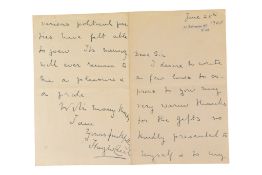 various political par
ties have felt able
to join. Its memory
will ever remain to
me a pleasure &
a pride.
With many
I am
Yours faithfully
June 21st
Dear Sir
I desire to write
a few lines to ex
press to you my
very warm thanks
for the gifts so
kindly presented to
myself & to my